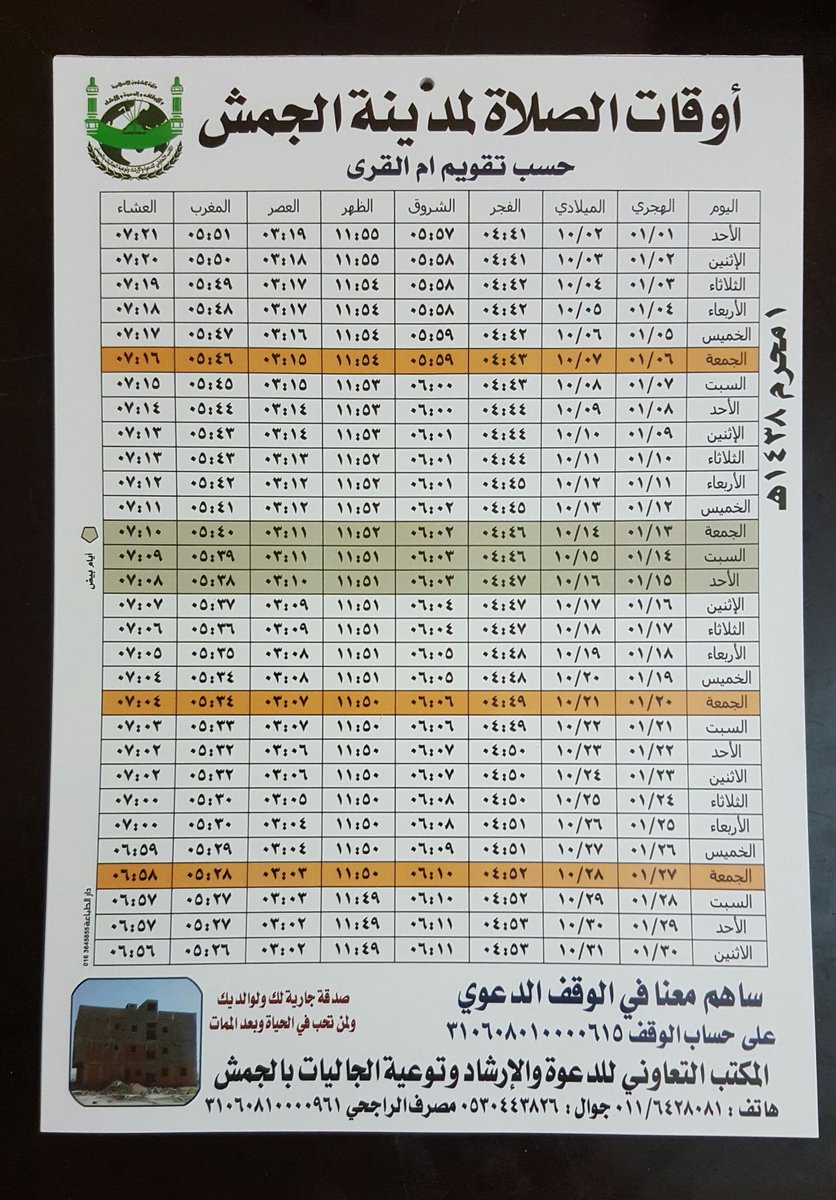 أوقات الصلاة لمدينة الجمش
حسب تقويم ام القرى
١ محرم ١٤٣٨هـ
اليوم الهجري الميلادي الفجر الشروق الظهر العصر المغرب العشاء
الأحد ٠١/٠١ ١٠/٠٢ ٠٤:٤١ ٠٥:٥٧ ١١:٥٥ ٠٣:١٩ ٠٥:٥١ ٠٧:٢١
الإثنين ٠١/٠٢ ١٠/٠٣ ٠٤:٤١ ٠٥:٥٨ ١١:٥٥ ٠٣:١٨ ٠٥:٥٠ ٠٧:٢٠
الثلاثاء ٠١/٠٣ ١٠/٠٤ ٠٤:٤٢ ٠٥:٥٨ ١١:٥٤ ٠٣:١٧ ٠٥:٤٩ ٠٧:١٩
الأربعاء ٠١/٠٤ ١٠/٠٥ ٠٤:٤٢ ٠٥:٥٨ ١١:٥٤ ٠٣:١٧ ٠٥:٤٨ ٠٧:١٨
الخميس ٠١/٠٥ ١٠/٠٦ ٠٤:٤٢ ٠٥:٥٩ ١١:٥٤ ٠٣:١٦ ٠٥:٤٧ ٠٧:١٧
الجمعة ٠١/٠٦ ١٠/٠٧ ٠٤:٤٣ ٠٥:٥٩ ١١:٥٤ ٠٣:١٥ ٠٥:٤٦ ٠٧:١٦
السبت ٠١/٠٧ ١٠/٠٨ ٠٤:٤٣ ٠٦:٠٠ ١١:٥٣ ٠٣:١٥ ٠٥:٤٥ ٠٧:١٥
الأحد ٠١/٠٨ ١٠/٠٩ ٠٤:٤٤ ٠٦:٠٠ ١١:٥٣ ٠٣:١٤ ٠٥:٤٤ ٠٧:١٤
الإثنين ٠١/٠٩ ١٠/١٠ ٠٤:٤٤ ٠٦:٠١ ١١:٥٣ ٠٣:١٤ ٠٥:٤٣ ٠٧:١٣
الثلاثاء ٠١/١٠ ١٠/١١ ٠٤:٤٤ ٠٦:٠١ ١١:٥٢ ٠٣:١٣ ٠٥:٤٣ ٠٧:١٣
الأربعاء ٠١/١١ ١٠/١٢ ٠٤:٤٥ ٠٦:٠١ ١١:٥٢ ٠٣:١٢ ٠٥:٤٢ ٠٧:١٢
الخميس ٠١/١٢ ١٠/١٣ ٠٤:٤٥ ٠٦:٠٢ ١١:٥٢ ٠٣:١٢ ٠٥:٤١ ٠٧:١١
الجمعة ٠١/١٣ ١٠/١٤ ٠٤:٤٦ ٠٦:٠٢ ١١:٥٢ ٠٣:١١ ٠٥:٤٠ ٠٧:١٠
السبت ٠١/١٤ ١٠/١٥ ٠٤:٤٦ ٠٦:٠٣ ١١:٥١ ٠٣:١١ ٠٥:٣٩ ٠٧:٠٩
الأحد ٠١/١٥ ١٠/١٦ ٠٤:٤٧ ٠٦:٠٣ ١١:٥١ ٠٣:١٠ ٠٥:٣٨ ٠٧:٠٨
الإثنين ٠١/١٦ ١٠/١٧ ٠٤:٤٧ ٠٦:٠٤ ١١:٥١ ٠٣:٠٩ ٠٥:٣٧ ٠٧:٠٧
الثلاثاء ٠١/١٧ ١٠/١٨ ٠٤:٤٧ ٠٦:٠٤ ١١:٥١ ٠٣:٠٩ ٠٥:٣٦ ٠٧:٠٦
الأربعاء ٠١/١٨ ١٠/١٩ ٠٤:٤٨ ٠٦:٠٥ ١١:٥١ ٠٣:٠٨ ٠٥:٣٥ ٠٧:٠٥
الخميس ٠١/١٩ ١٠/٢٠ ٠٤:٤٨ ٠٦:٠٥ ١١:٥١ ٠٣:٠٨ ٠٥:٣٤ ٠٧:٠٤
الجمعة ٠١/٢٠ ١٠/٢١ ٠٤:٤٩ ٠٦:٠٦ ١١:٥٠ ٠٣:٠٧ ٠٥:٣٤ ٠٧:٠٤
السبت ٠١/٢١ ١٠/٢٢ ٠٤:٤٩ ٠٦:٠٦ ١١:٥٠ ٠٣:٠٧ ٠٥:٣٣ ٠٧:٠٣
الأحد ٠١/٢٢ ١٠/٢٣ ٠٤:٥٠ ٠٦:٠٧ ١١:٥٠ ٠٣:٠٦ ٠٥:٣٢ ٠٧:٠٢
الاثنين ٠١/٢٣ ١٠/٢٤ ٠٤:٥٠ ٠٦:٠٧ ١١:٥٠ ٠٣:٠٦ ٠٥:٣٢ ٠٧:٠٢
الثلاثاء ٠١/٢٤ ١٠/٢٥ ٠٤:٥٠ ٠٦:٠٨ ١١:٥٠ ٠٣:٠٥ ٠٥:٣٠ ٠٧:٠٠
الأربعاء ٠١/٢٥ ١٠/٢٦ ٠٤:٥١ ٠٦:٠٨ ١١:٥٠ ٠٣:٠٤ ٠٥:٣٠ ٠٧:٠٠
الخميس ٠١/٢٦ ١٠/٢٧ ٠٤:٥١ ٠٦:٠٩ ١١:٥٠ ٠٣:٠٤ ٠٥:٢٩ ٠٦:٥٩
الجمعة ٠١/٢٧ ١٠/٢٨ ٠٤:٥٢ ٠٦:١٠ ١١:٥٠ ٠٣:٠٣ ٠٥:٢٨ ٠٦:٥٨
السبت ٠١/٢٨ ١٠/٢٩ ٠٤:٥٢ ٠٦:١٠ ١١:٤٩ ٠٣:٠٣ ٠٥:٢٧ ٠٦:٥٧
الأحد ٠١/٢٩ ١٠/٣٠ ٠٤:٥٣ ٠٦:١١ ١١:٤٩ ٠٣:٠٢ ٠٥:٢٧ ٠٦:٥٧
الاثنين ٠١/٣٠ ١٠/٣١ ٠٤:٥٣ ٠٦:١١ ١١:٤٩ ٠٣:٠٢ ٠٥:٢٦ ٠٦:٥٦
أيام بيض
دار الطباعة 016 3645855
ساهم معنا في الوقف الدعوي
على حساب الوقف ٣١٠٦٠٨٠١٠٠٠٠٦١٥
صدقة جارية لك ولوالديك
ولمن تحب في الحياة وبعد الممات
المكتب التعاوني للدعوة والإرشاد وتوعية الجاليات بالجمش
هاتف : ٠١١/٦٤٢٨٠٨١ جوال : ٠٥٣٠٤٤٣٨٢٦ مصرف الراجحي ٣١٠٦٠٨١٠٠٠٠٩٦١